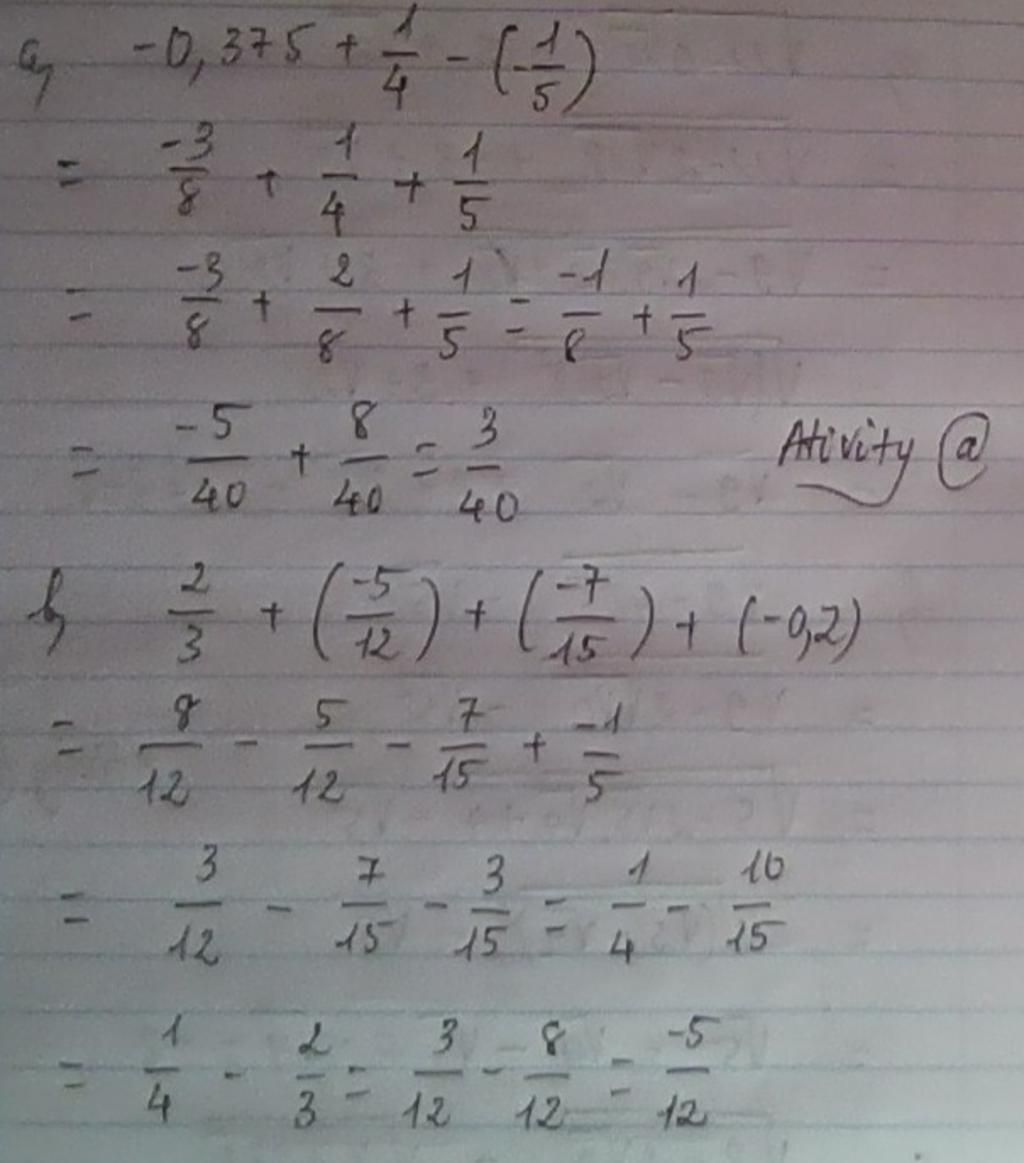 a, -0,375 + 1/4 - (-1/5)
= -3/8 + 1/4 + 1/5
= -3/8 + 2/8 + 1/5 = -1/8 + 1/5
= -5/40 + 8/40 = 3/40
Ativity ⓐ
b, 2/3 + (-5/12) + (-7/15) + (-0,2)
= 8/12 - 5/12 - 7/15 + -1/5
= 3/12 - 7/15 - 3/15 = 1/4 - 10/15
= 1/4 - 2/3 = 3/12 - 8/12 = -5/12